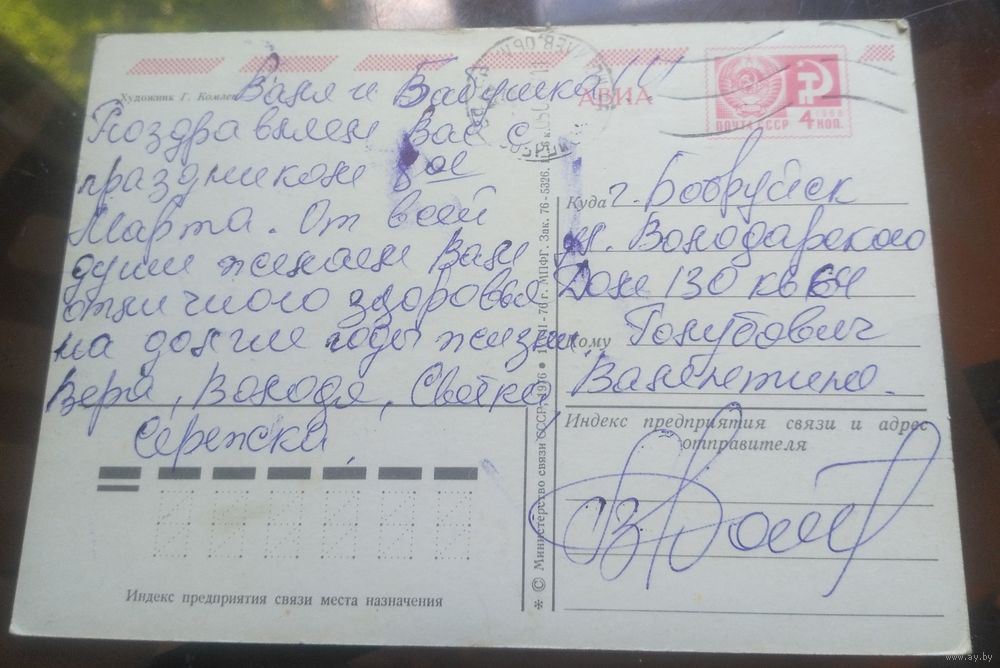 Художник Г. Комлев
АВИА
ПОЧТА СССР
4 КОП.
1966
Валя и Бабушка!!!
Поздравляем Вас с
праздником 8ое
Марта. От всей
души желаем Вам
отличного здоровья
на долгие годы жизни
Вера, Володя, Светка,
Сережка
Индекс предприятия связи места назначения
* © Министерство связи СССР, 1976 • МПФГ. Зак. 76-5326.
Куда г. Бобруйск
ул. Володарского
Дом 130 кв 64
Кому Голубович
Валентине.
Индекс предприятия связи и адрес
отправителя
www.ay.by